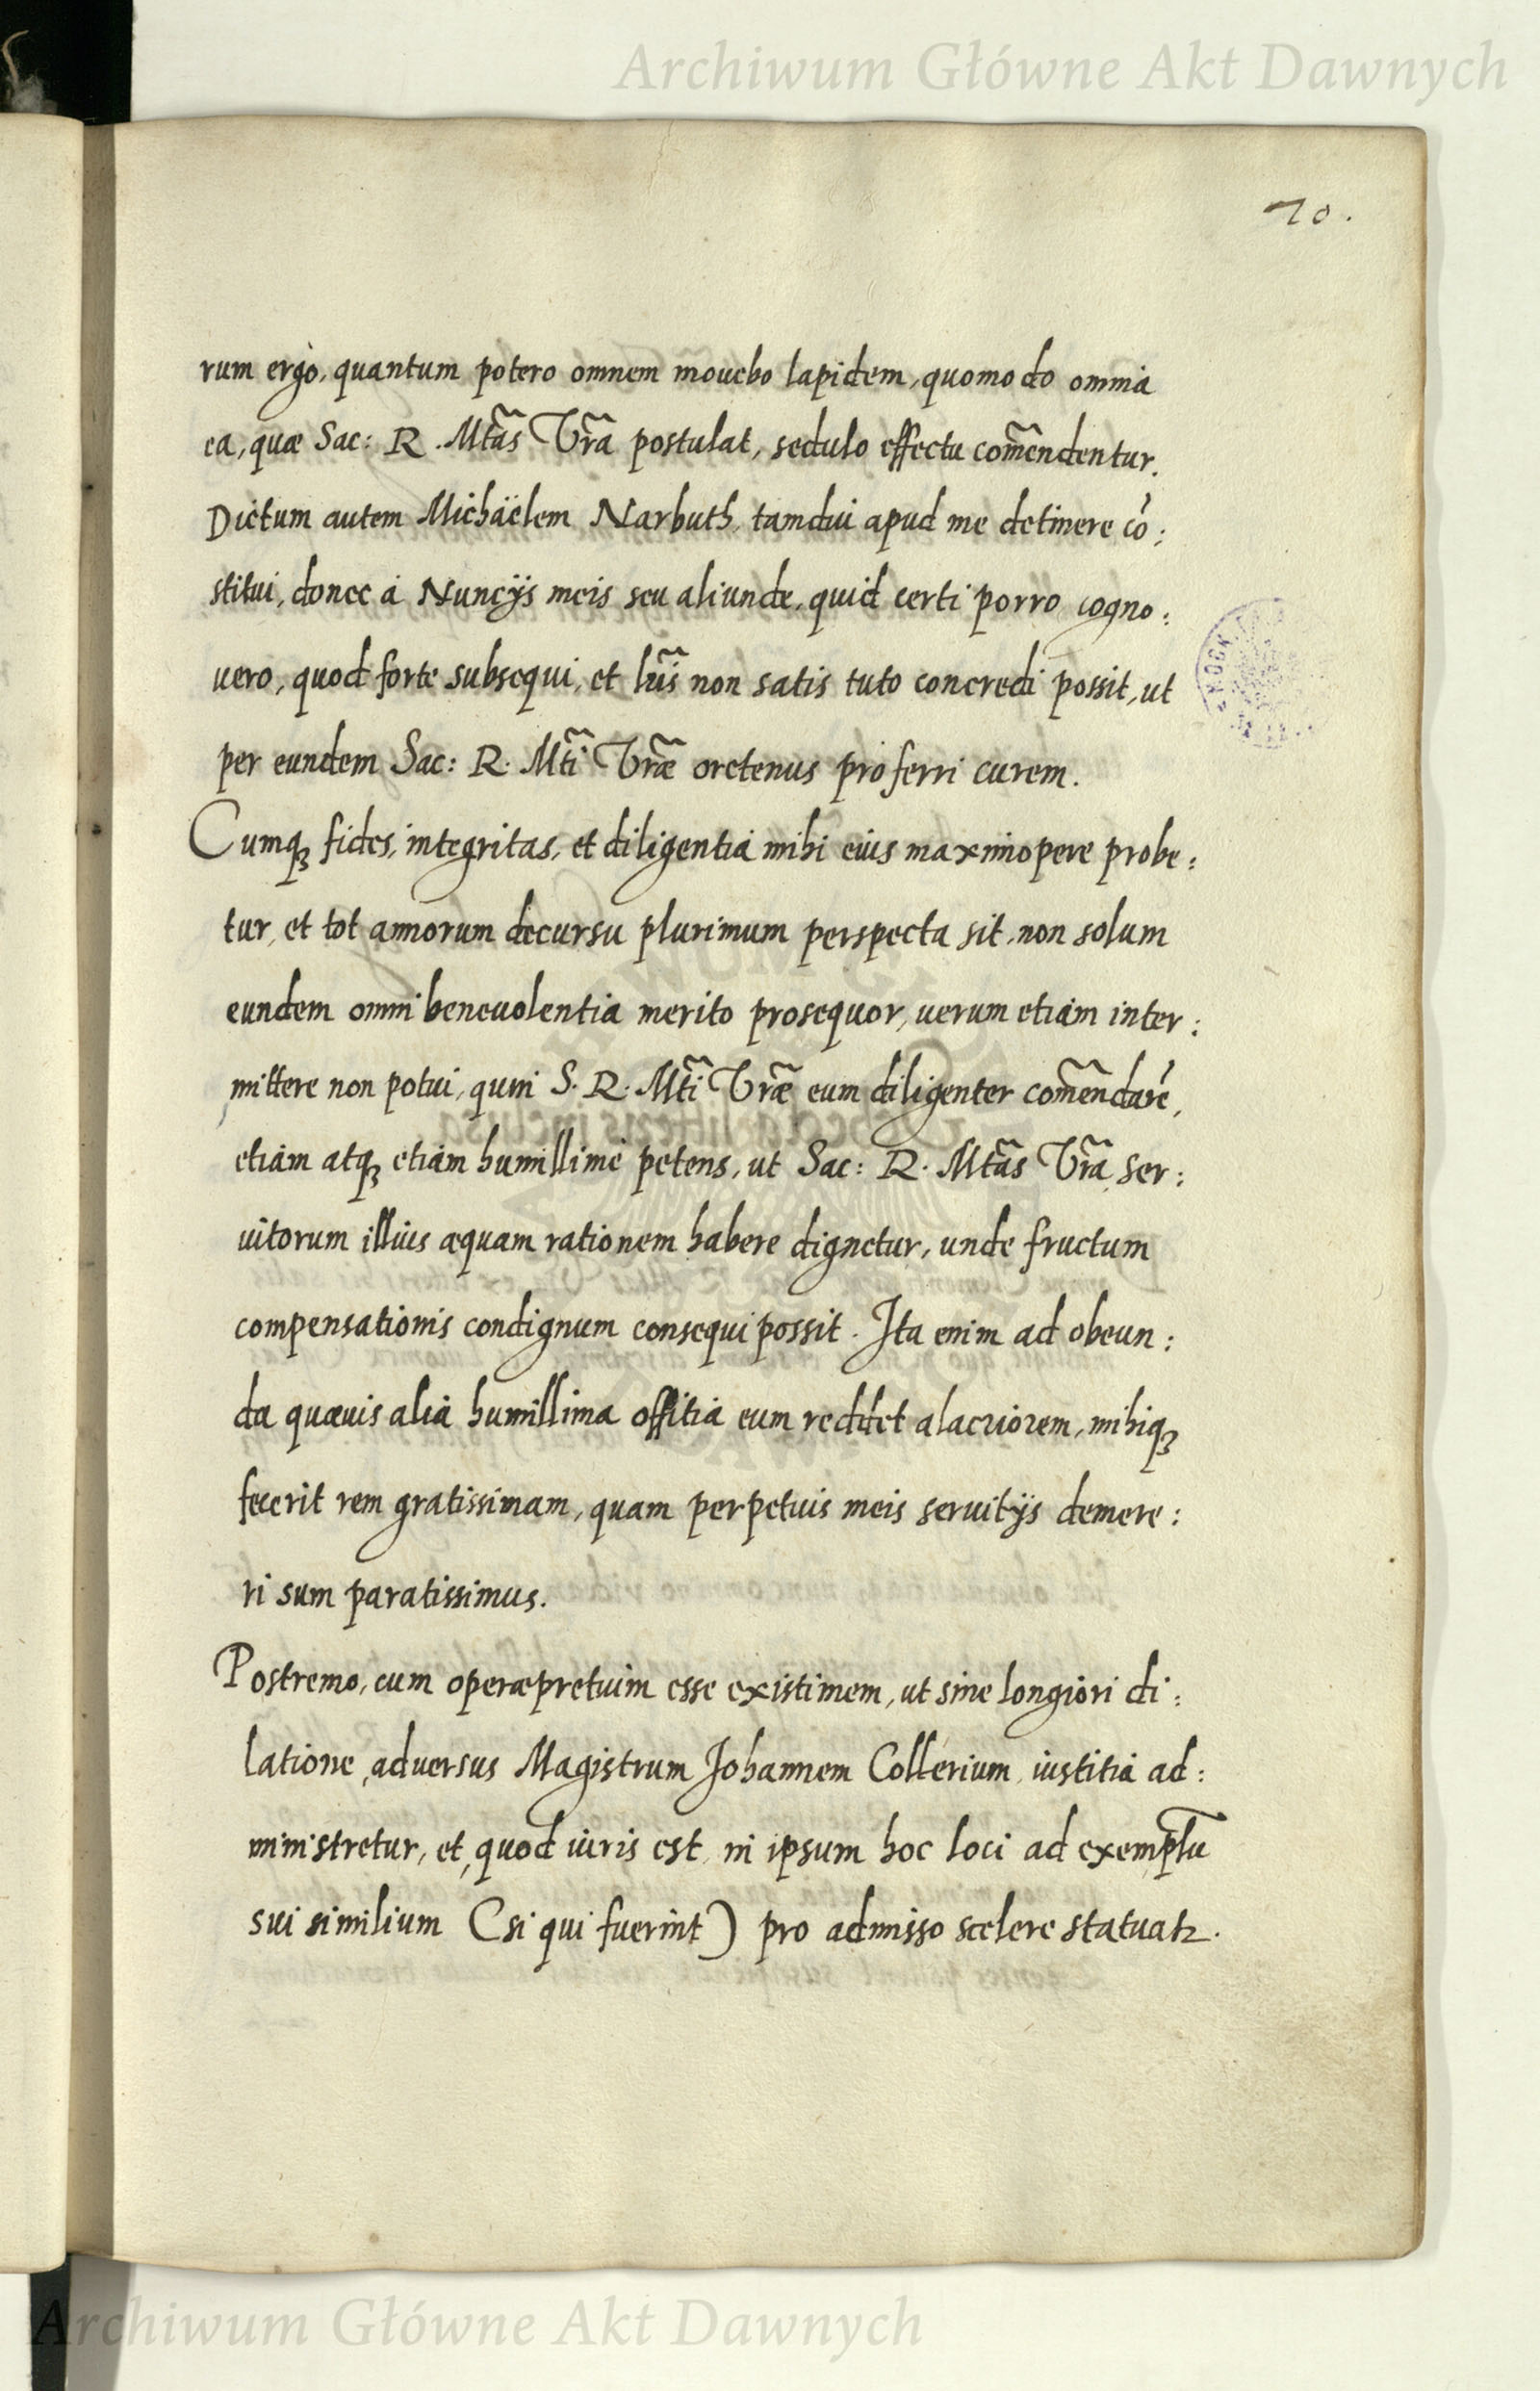 Archiwum Główne Akt Dawnych
70.
rum ergo, quantum potero omnem mouebo lapidem, quomodo omnia
ea, quæ Sac: R. Mt̃as Vr̃a postulat, sedulo effectu com̃endentur.
Dictum autem Michäelem Narbuth, tamdiu apud me detinere cō:
stitui, donec à Nuncijs meis seu aliunde, quid certi porro cogno:
uero, quod forte subsequi, et lr̃is non satis tuto concredi possit, ut
per eundem Sac: R. Mt̃i Vr̃æ oretenus proferri curem.
Cumq̨ fides, integritas, et diligentia mihi eius maximopere probe:
tur, et tot annorum decursu plurimum perspecta sit, non solum
eundem omni beneuolentia merito prosequor, uerum etiam inter:
mittere non potui, quin S. R. Mt̃i Vr̃æ eum diligenter com̃endarē,
etiam atq̨ etiam humillimè petens, ut Sac: R. Mt̃as Vr̃a, ser:
uitorum illius æquam rationem habere dignetur, unde fructum
compensationis condignum consequi possit. Ita enim ad obeun:
da quæuis alia humillima offitia eum reddet alacriorem, mihiq̨
fecerit rem gratissimam, quam perpetuis meis seruitijs demere:
ri sum paratissimus.
Postremo, cum operæpretuim esse existimem, ut sine longiori di:
latione, aduersus Magistrum Johannem Collerium, iustitia ad:
ministretur, et, quod iuris est, in ipsum hoc loci ad exemplū
sui similium (si qui fuerint) pro admisso scelere statuatꝛ.
Archiwum Główne Akt Dawnych